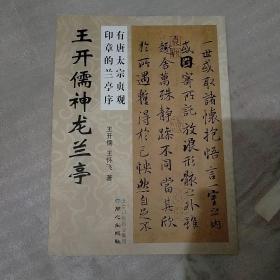 一世或取諸懷抱悟言一室之内
或因寄所託放浪形骸之外雖
趣舍萬殊静躁不同當其欣
於所遇暫得於己怏然自足不
有唐太宗贞观
印章的兰亭序
王开儒神龙兰亭
王开儒 王怀飞 著